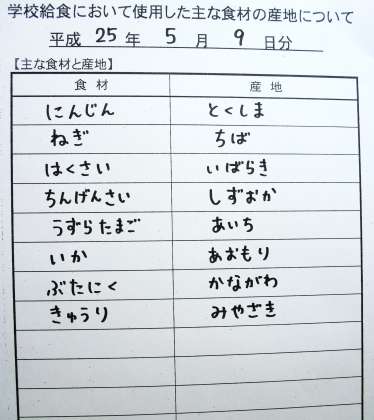 学校給食において使用した主な食材の産地について
平成 25 年 5 月 9 日分
【主な食材と産地】
食 材 産 地
にんじん とくしま
ねぎ ちば
はくさい いばらき
ちんげんさい しずおか
うずらたまご あいち
いか あおもり
ぶたにく かながわ
きゅうり みやざき